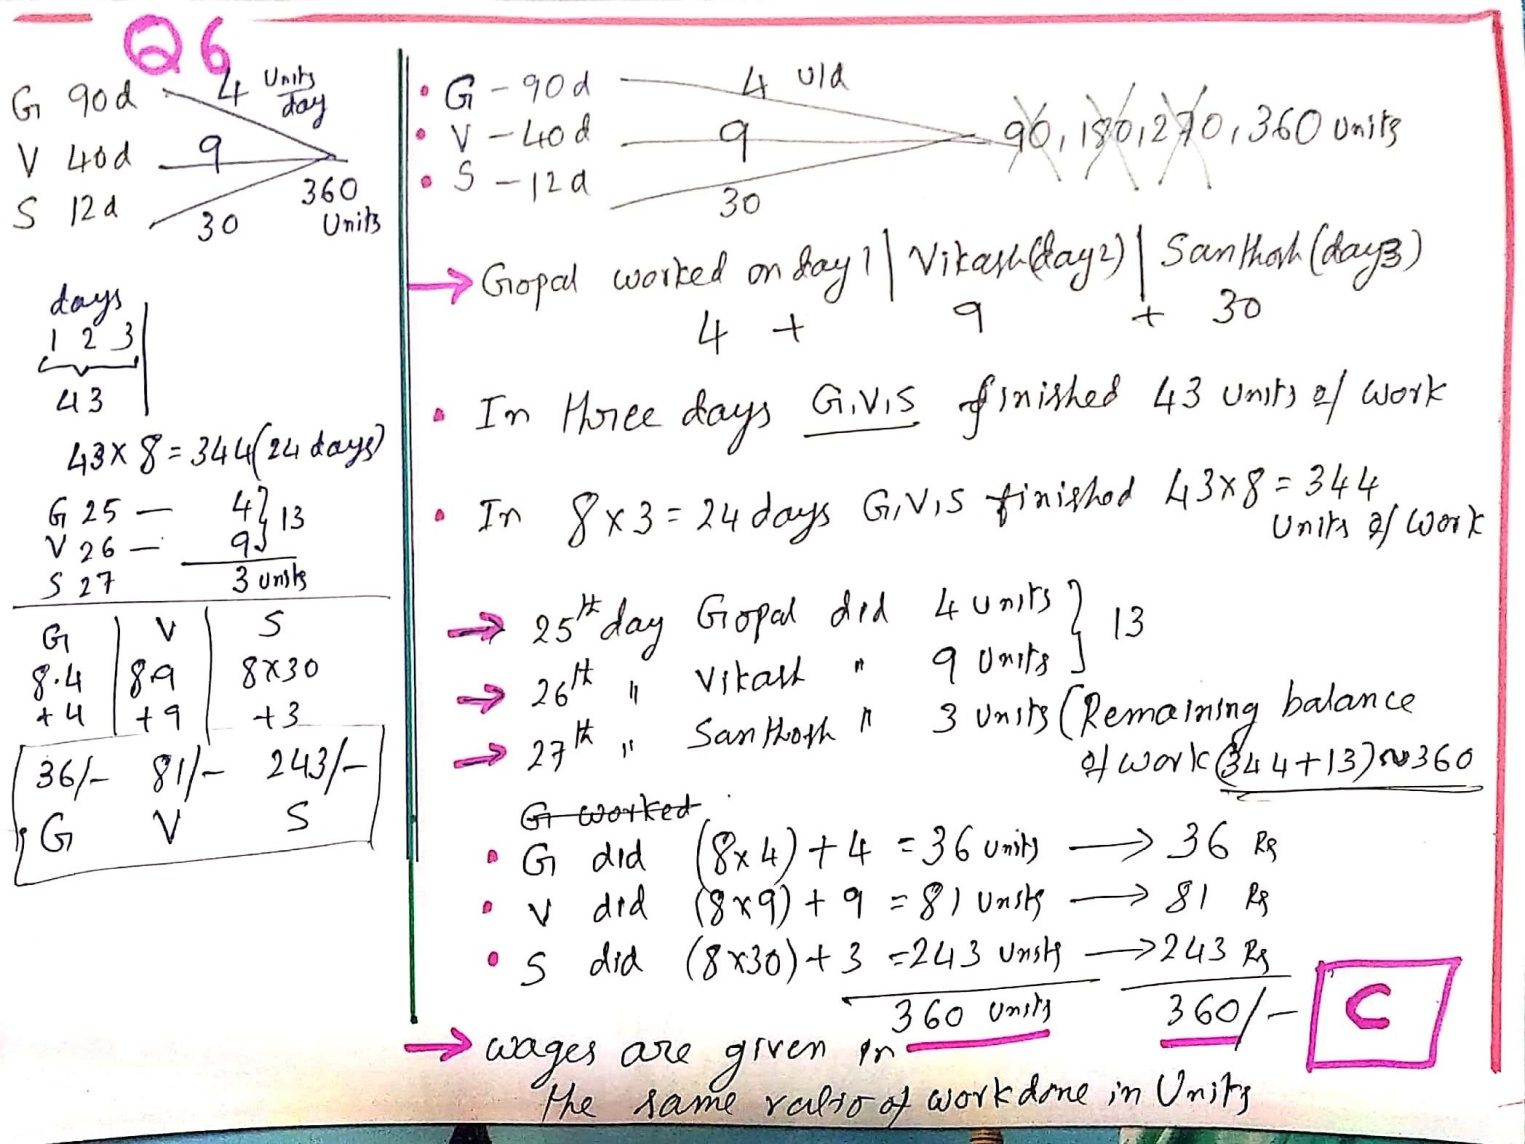 Q6
G 90d 4 Units/day
V 40d 9
S 12d 30 360 Units
days
1 2 3
43
43 x 8 = 344 (24 days)
G 25 — 4 } 13
V 26 — 9
S 27 3 units
G | V | S
8.4 | 8.9 | 8x30
+4 | +9 | +3
36/- 81/- 243/-
G V S
• G - 90d 4 u/d
• V - 40d 9 90, 180, 270, 360 units
• S - 12d 30
→ Gopal worked on day 1 | Vikash (day 2) | Santhosh (day 3)
4 + 9 + 30
• In three days G,V,S finished 43 units of work
• In 8 x 3 = 24 days G,V,S finished 43x8 = 344 Units of work
→ 25th day Gopal did 4 units } 13
→ 26th " Vikash " 9 Units
→ 27th " Santhosh " 3 Units (Remaining balance
of work (344+13)~360
G worked
• G did (8x4) + 4 = 36 units → 36 Rs
• V did (8x9) + 9 = 81 units → 81 Rs
• S did (8x30) + 3 = 243 units → 243 Rs
360 units 360/- C
→ wages are given in
the same ratio of work done in Units